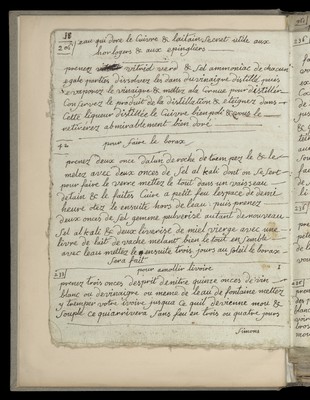 38
eau qui dore le Cuivre & laitain Secret utile aux
horlogers & aux epingliers
prenez vitriol verd & sel ammoniac de chacun
egale parties dissolvez les dans du vinaigre distillé puis
evaporez le vinaigre & mettez a la Cornue pour distiller
Conservez le produit de la distillation & eteignez dans
Cette liqueur distillée le Cuivre bien poli &
retirerez admirablement bien doré
pour faire le borax
prenez deux once dalun de roche de bien pez le & le
melez avec deux onces de Sel alkali dont on se sert
pour faire le verre mettez le tout dans un vaisseau
detain & le faites Cuire a petit feu lespace de demi
heure otez la ensuite hors de leau puis prenez
deux onces de Sel gemme pulverisé autant de nouveau
Sel alkali & deux livres de miel vierge avec une
livre de lait de vache melant bien le tout ensemble
avec leau mettez le ensuite trois jours au Soleil le borax
sera fait
pour emollir livoire
prenez trois onces desprit de nitre quinze onces de vin
blanc ou de vinaigre ou meme de leau de fontaine mettez
y tremper votre ivoire jusqua Ce quil devienne mou &
Souple Ce qui arrivera Sans feu en trois ou quatre jours